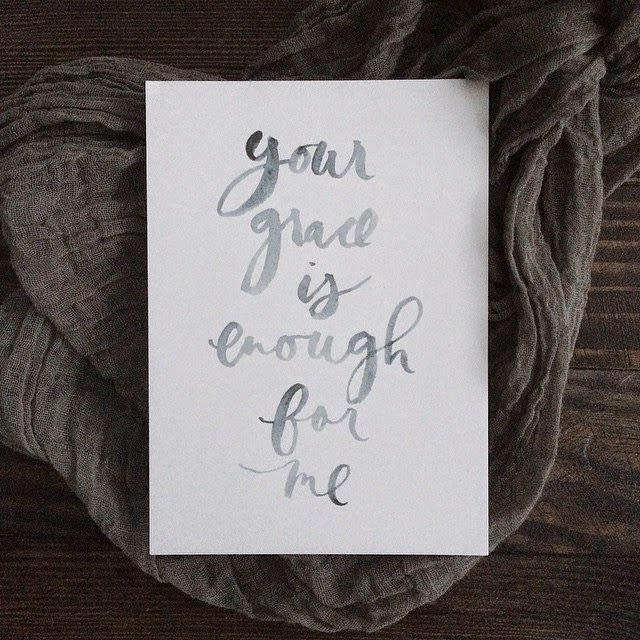 your
grace
is
enough
for
me